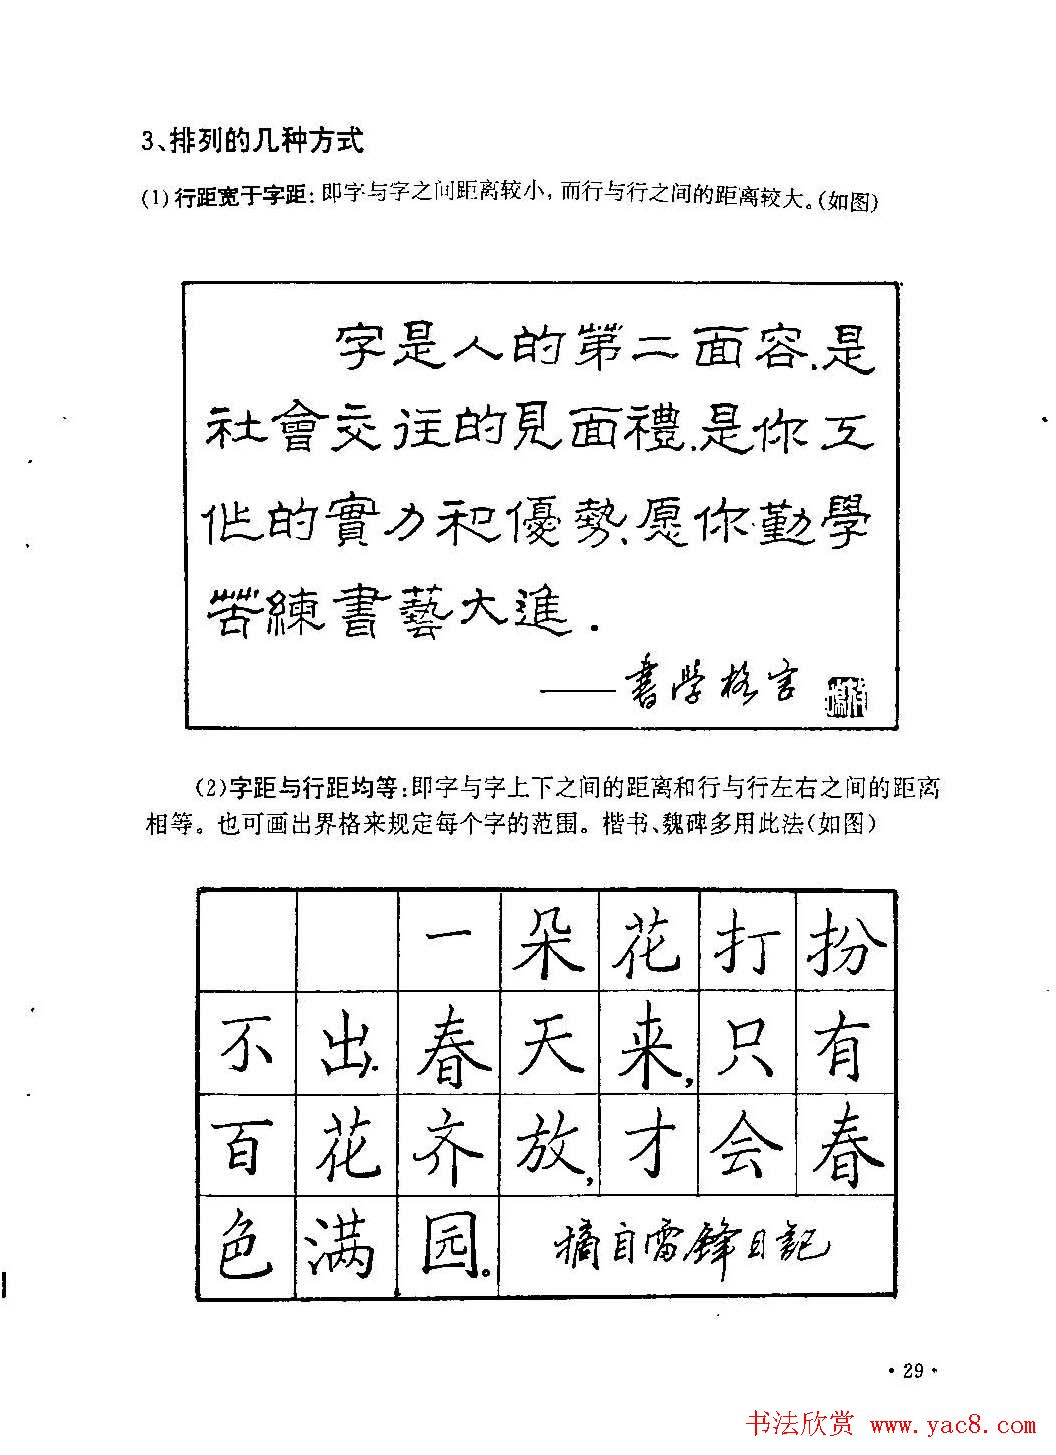 3、排列的几种方式
(1)行距宽于字距:即字与字之间距离较小,而行与行之间的距离较大。(如图)
字是人的第二面容.是
社會交往的見面禮.是你工
作的實力和優勢、愿你勤學
苦練書藝大進.
——書学格言
(2)字距与行距均等:即字与字上下之间的距离和行与行左右之间的距离
相等。也可画出界格来规定每个字的范围。楷书、魏碑多用此法(如图)
一朵花打扮
不出春天来,只有
百花齐放,才会春
色满园。
摘自雷鋒日記
·29·
书法欣赏 www.yac8.com